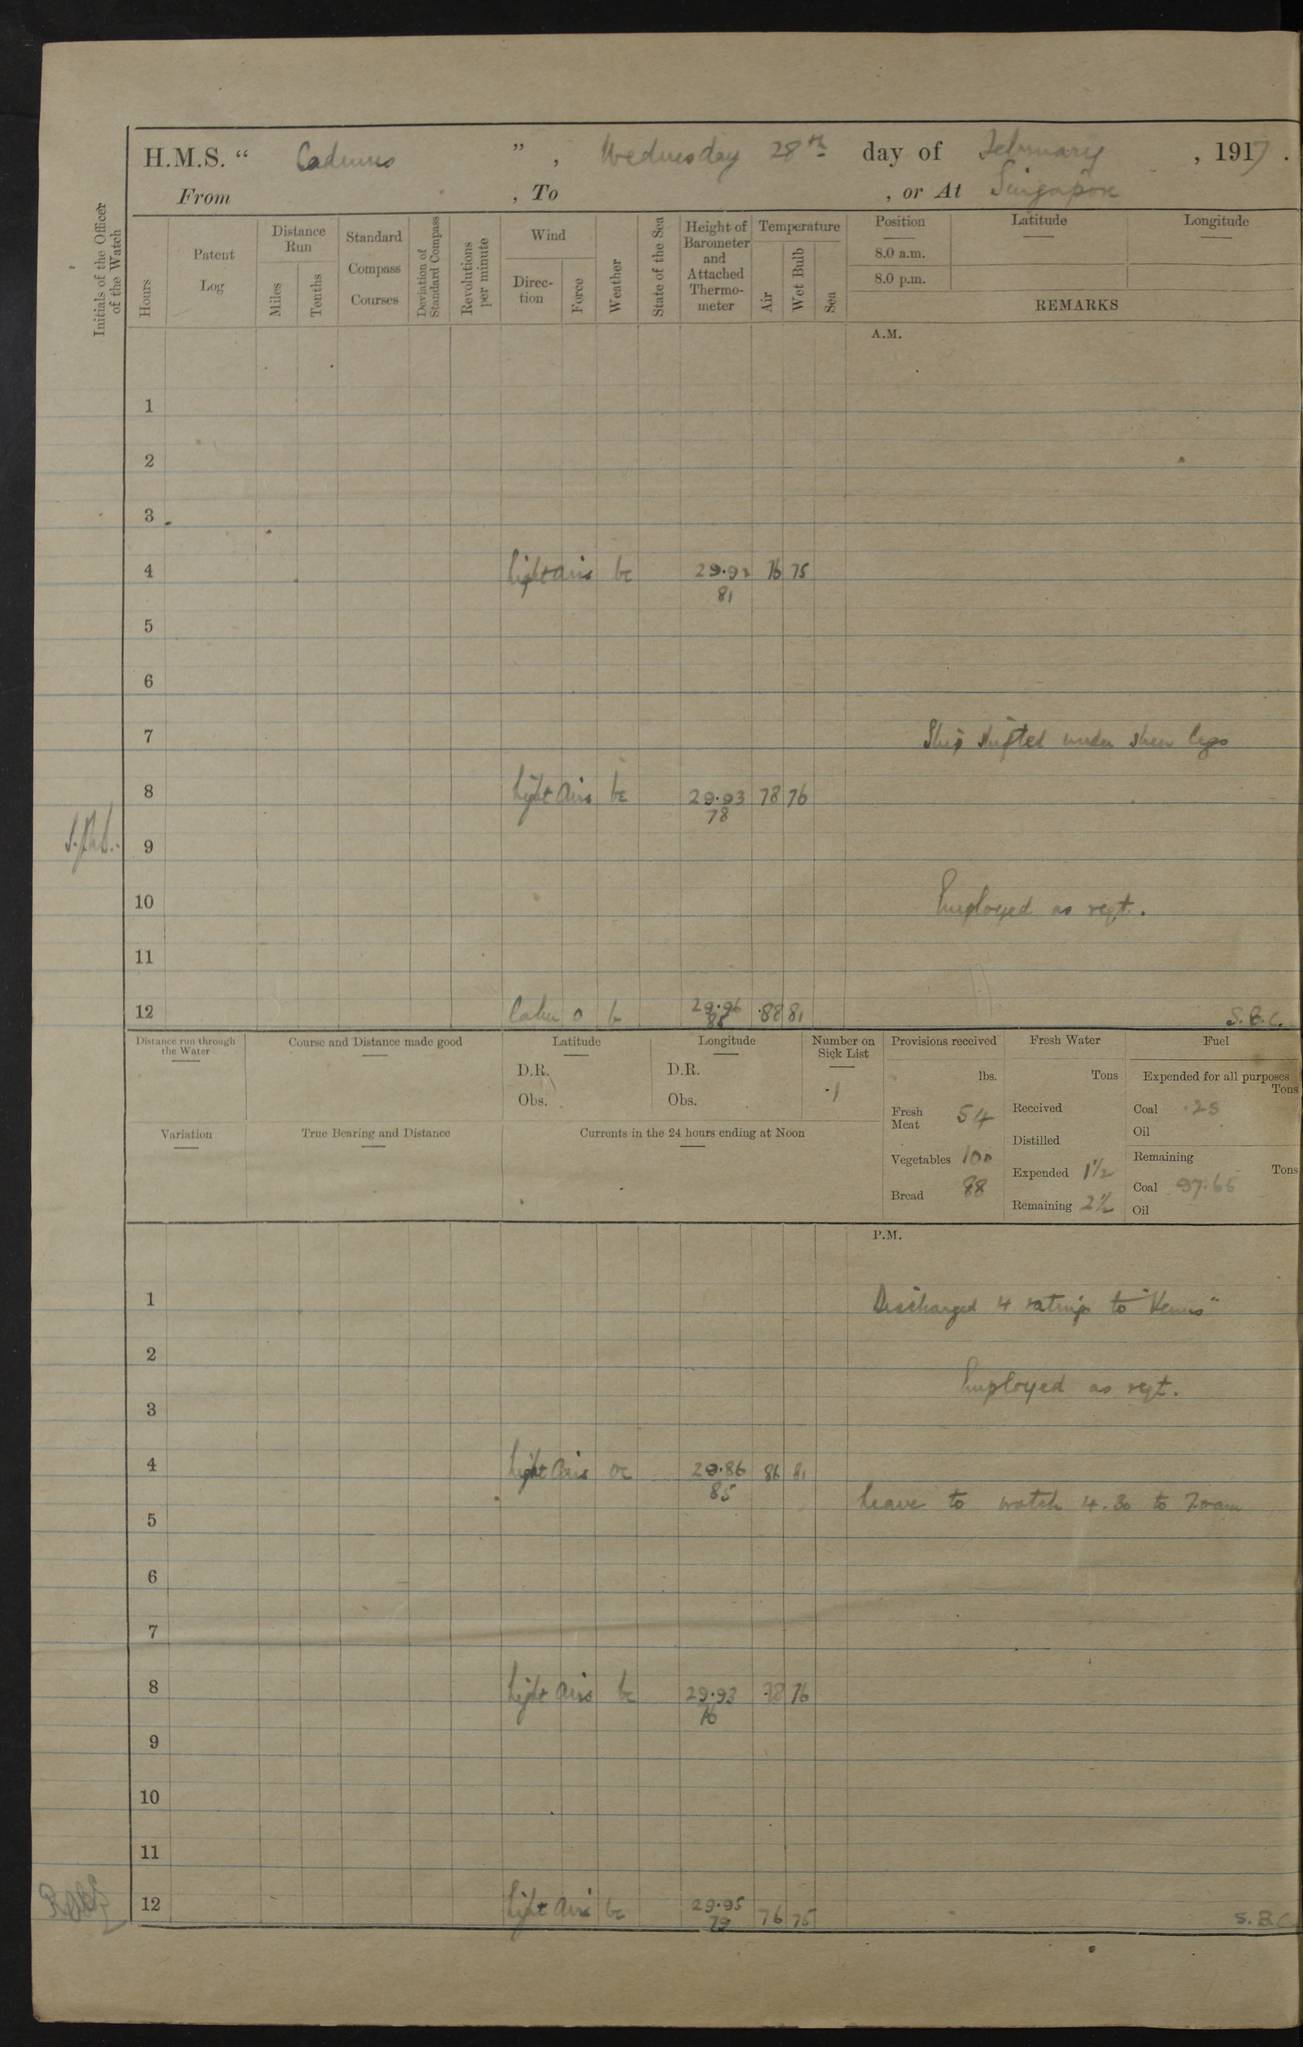 H.M.S. " Cadmus ", Wednesday 28th day of February, 1917.
From , To , or At Singapore
Initials of the Officer of the Watch
Hours
Patent Log
Distance Run
Miles
Tenths
Standard Compass Courses
Deviation of Standard Compass
Revolutions per minute
Wind
Direction
Force
Weather
State of the Sea
Height of Barometer and Attached Thermometer
Temperature
Air
Wet Bulb
Sea
Position
Latitude
Longitude
8.0 a.m.
8.0 p.m.
REMARKS
A.M.
1
2
3
4 light airs bc 29.92 76 75
81
5
6
7 Ship shifted under shear legs
8 light airs bc 29.93 78 76
78
9
10 Employed as reqt.
11
12 Calm 0 b 29.96 88 81 S.B.C.
Distance run through the Water
Course and Distance made good
Latitude
D.R.
Obs.
Longitude
D.R.
Obs.
Number on Sick List
1
Provisions received
lbs.
Fresh Meat 54
Vegetables 100
Bread 88
Fresh Water
Tons
Received
Distilled
Expended 1½
Remaining 2½
Fuel
Expended for all purposes
Tons
Coal .25
Oil
Remaining
Tons
Coal 97.65
Oil
Variation
True Bearing and Distance
Currents in the 24 hours ending at Noon
P.M.
1 Discharged 4 ratings to "Venus"
2
Employed as reqt.
3
4 light airs oc 29.86 86 81
85
leave to watch 4.30 to 7.0am
5
6
7
8 light airs bc 29.93 78 76
76
9
10
11
12 light airs bc 29.95 76 75
79
S.B.C.